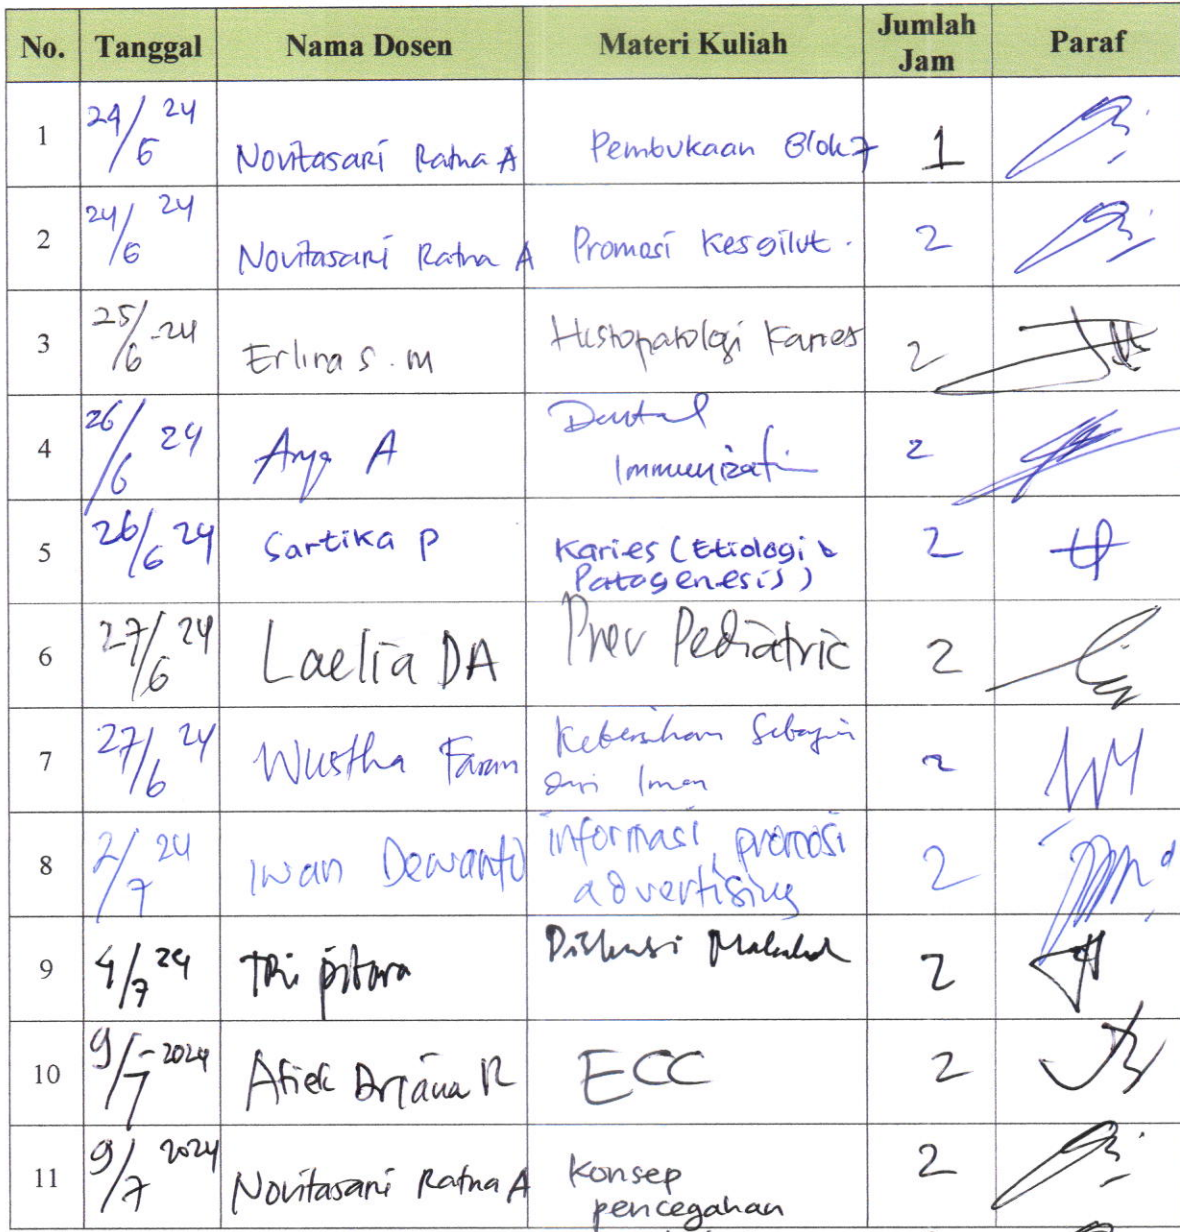 No. Tanggal Nama Dosen Materi Kuliah Jumlah Jam Paraf
1 24/6 24 Novitasari Ratna A Pembukaan Blok 7 1
2 24/6 24 Novitasari Ratna A Promosi Kesgilut. 2
3 25/6-24 Erlina S. M Histopatologi Karies 2
4 26/6 24 Arya A Dental Immunization 2
5 26/6 24 Sartika P Karies (Etiologi & Patogenesis) 2
6 27/6 24 Laelia DA Prev Pediatric 2
7 27/6 24 Wustha Kebersihan Sebagian dari Iman 2
8 2/7 24 Iwan Dewanto informasi, promosi advertising 2
9 4/7 24 Tri Diskusi Makalah 2
10 9/7-2024 Atiek Driana R ECC 2
11 9/7 2024 Novitasari Ratna A Konsep pencegahan 2